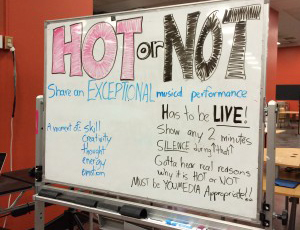 HOT or NOT
Share an EXCEPTIONAL musical performance
Has to be LIVE!
A moment of: skill
Creativity
thought
energy
emotion
Show any 2 minutes
SILENCE during that!
Gotta hear real reasons
why it is HOT or NOT
MUST BE YOUMEDIA Appropriate!!